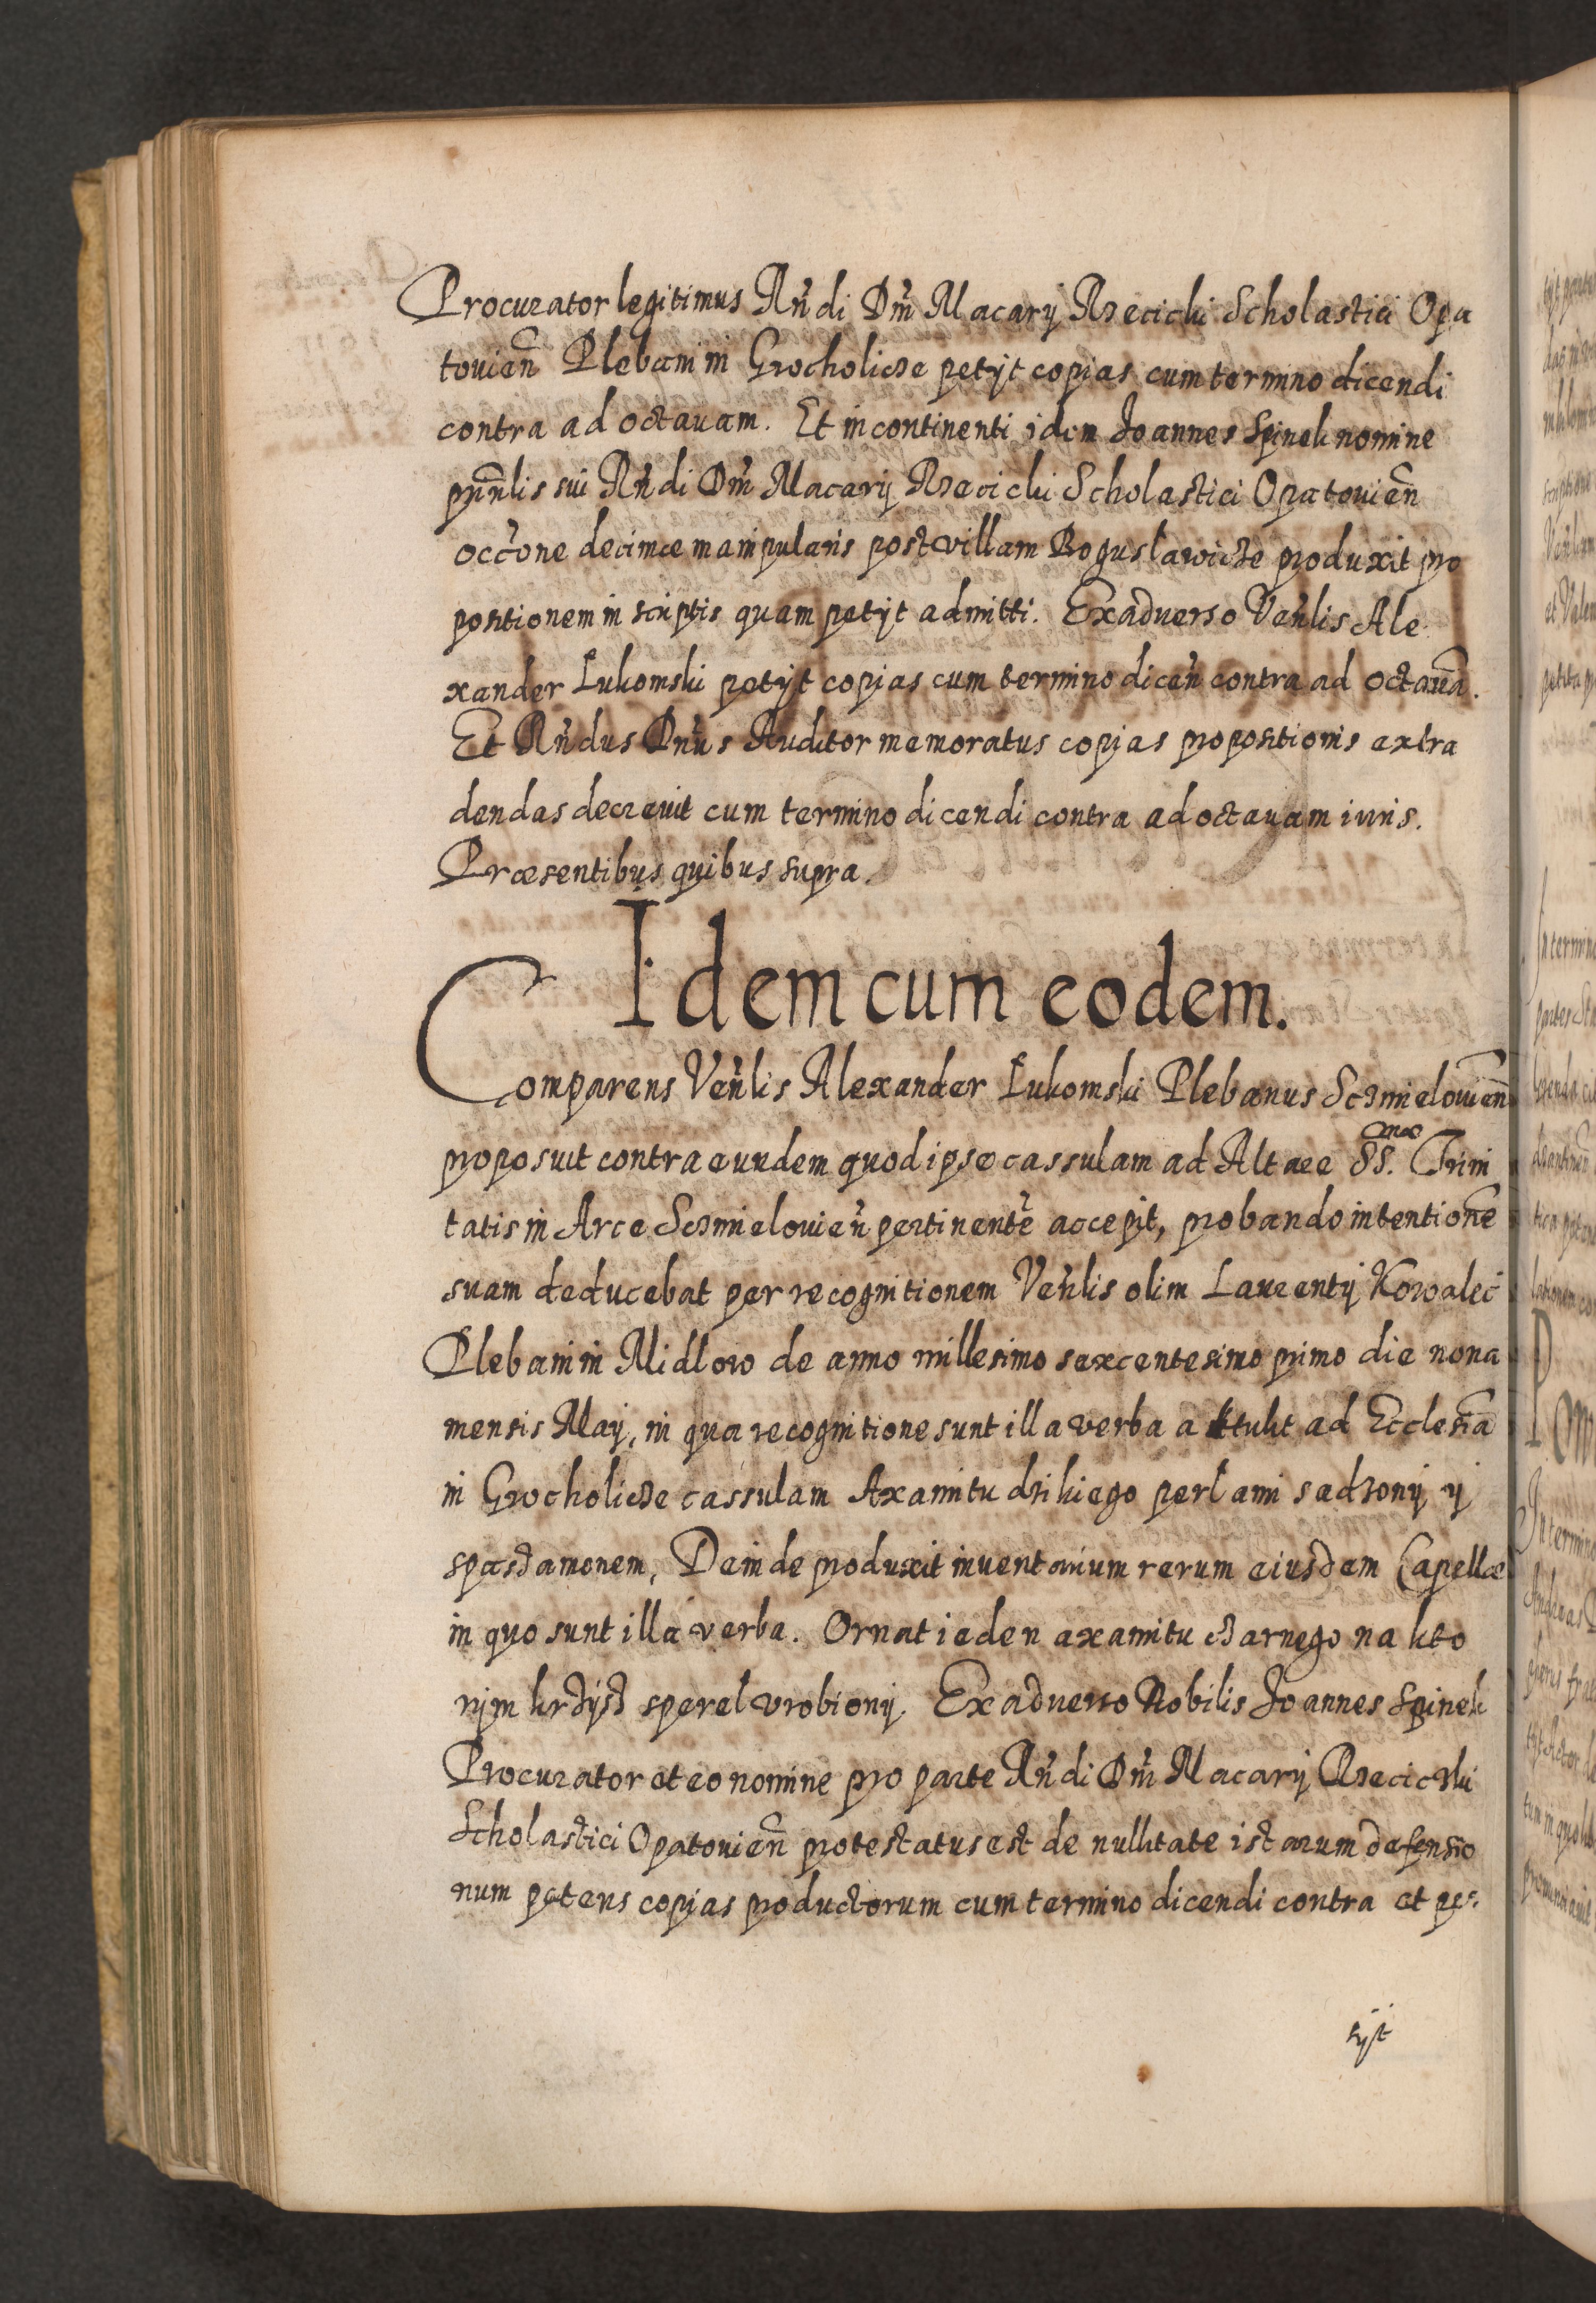 Procurator legitimus Rn̄di Dn̄i Macarÿ Rzeciczki Scholastici Opa
touien̄ Plebani in Grocholicze petÿt copias cum termino dicendi
contra ad octauam. Et in continenti idem Joannes Spinek nomine
prin̄lis sui Rn̄di Dn̄i Macarÿ Rzeciczki Scholastici Opatouien̄
occ̄one decimæ manipularis post villam Boguslawicze produxit pro
positionem in scriptis quam petÿt admitti. Ex aduerso Ven̄lis Ale
xander Łukomski petÿt copias cum termino dicen̄ contra ad octauā.
Et Rn̄dus Dn̄us Auditor memoratus copias propositionis extra
dendas decreuit cum termino dicendi contra ad octauam iuris.
Præsentibus quibus supra.
Idem cum eodem.
Comparens Ven̄lis Alexander Łukomski Plebanus Sczmielouien̄
proposuit contra eundem quod ipse cassulam ad Altare SS. Trini
tatis in Arce Sczmielouien̄ pertinentē accepit, probando intentionē
suam deducebat per recognitionem Ven̄lis olim Laurentÿ Kowalec
Plebani in Midłow de anno millesimo sexcentesimo primo die nona
mensis Maÿ, in qua recognitione sunt illa verba attulit ad Ecclesiā
in Grocholicze cassulam Axamitu dzikiego perłami sadzonÿ ÿ
spasdamonem, Deinde produxit inuentarium rerum eiusdem Capellæ
in quo sunt illa verba. Ornat ieden axamitu czarnego na kto
rÿm krzÿsz z pereł vrobionÿ. Ex aduerso Nobilis Joannes Spinek
Procurator et eo nomine pro parte Rn̄di Dn̄i Macarÿ Rzeciczki
Scholastici Opatouien̄ protestatus est de nullitate istarum defensio
num petens copias productorum cum termino dicendi contra et pe:
tÿt